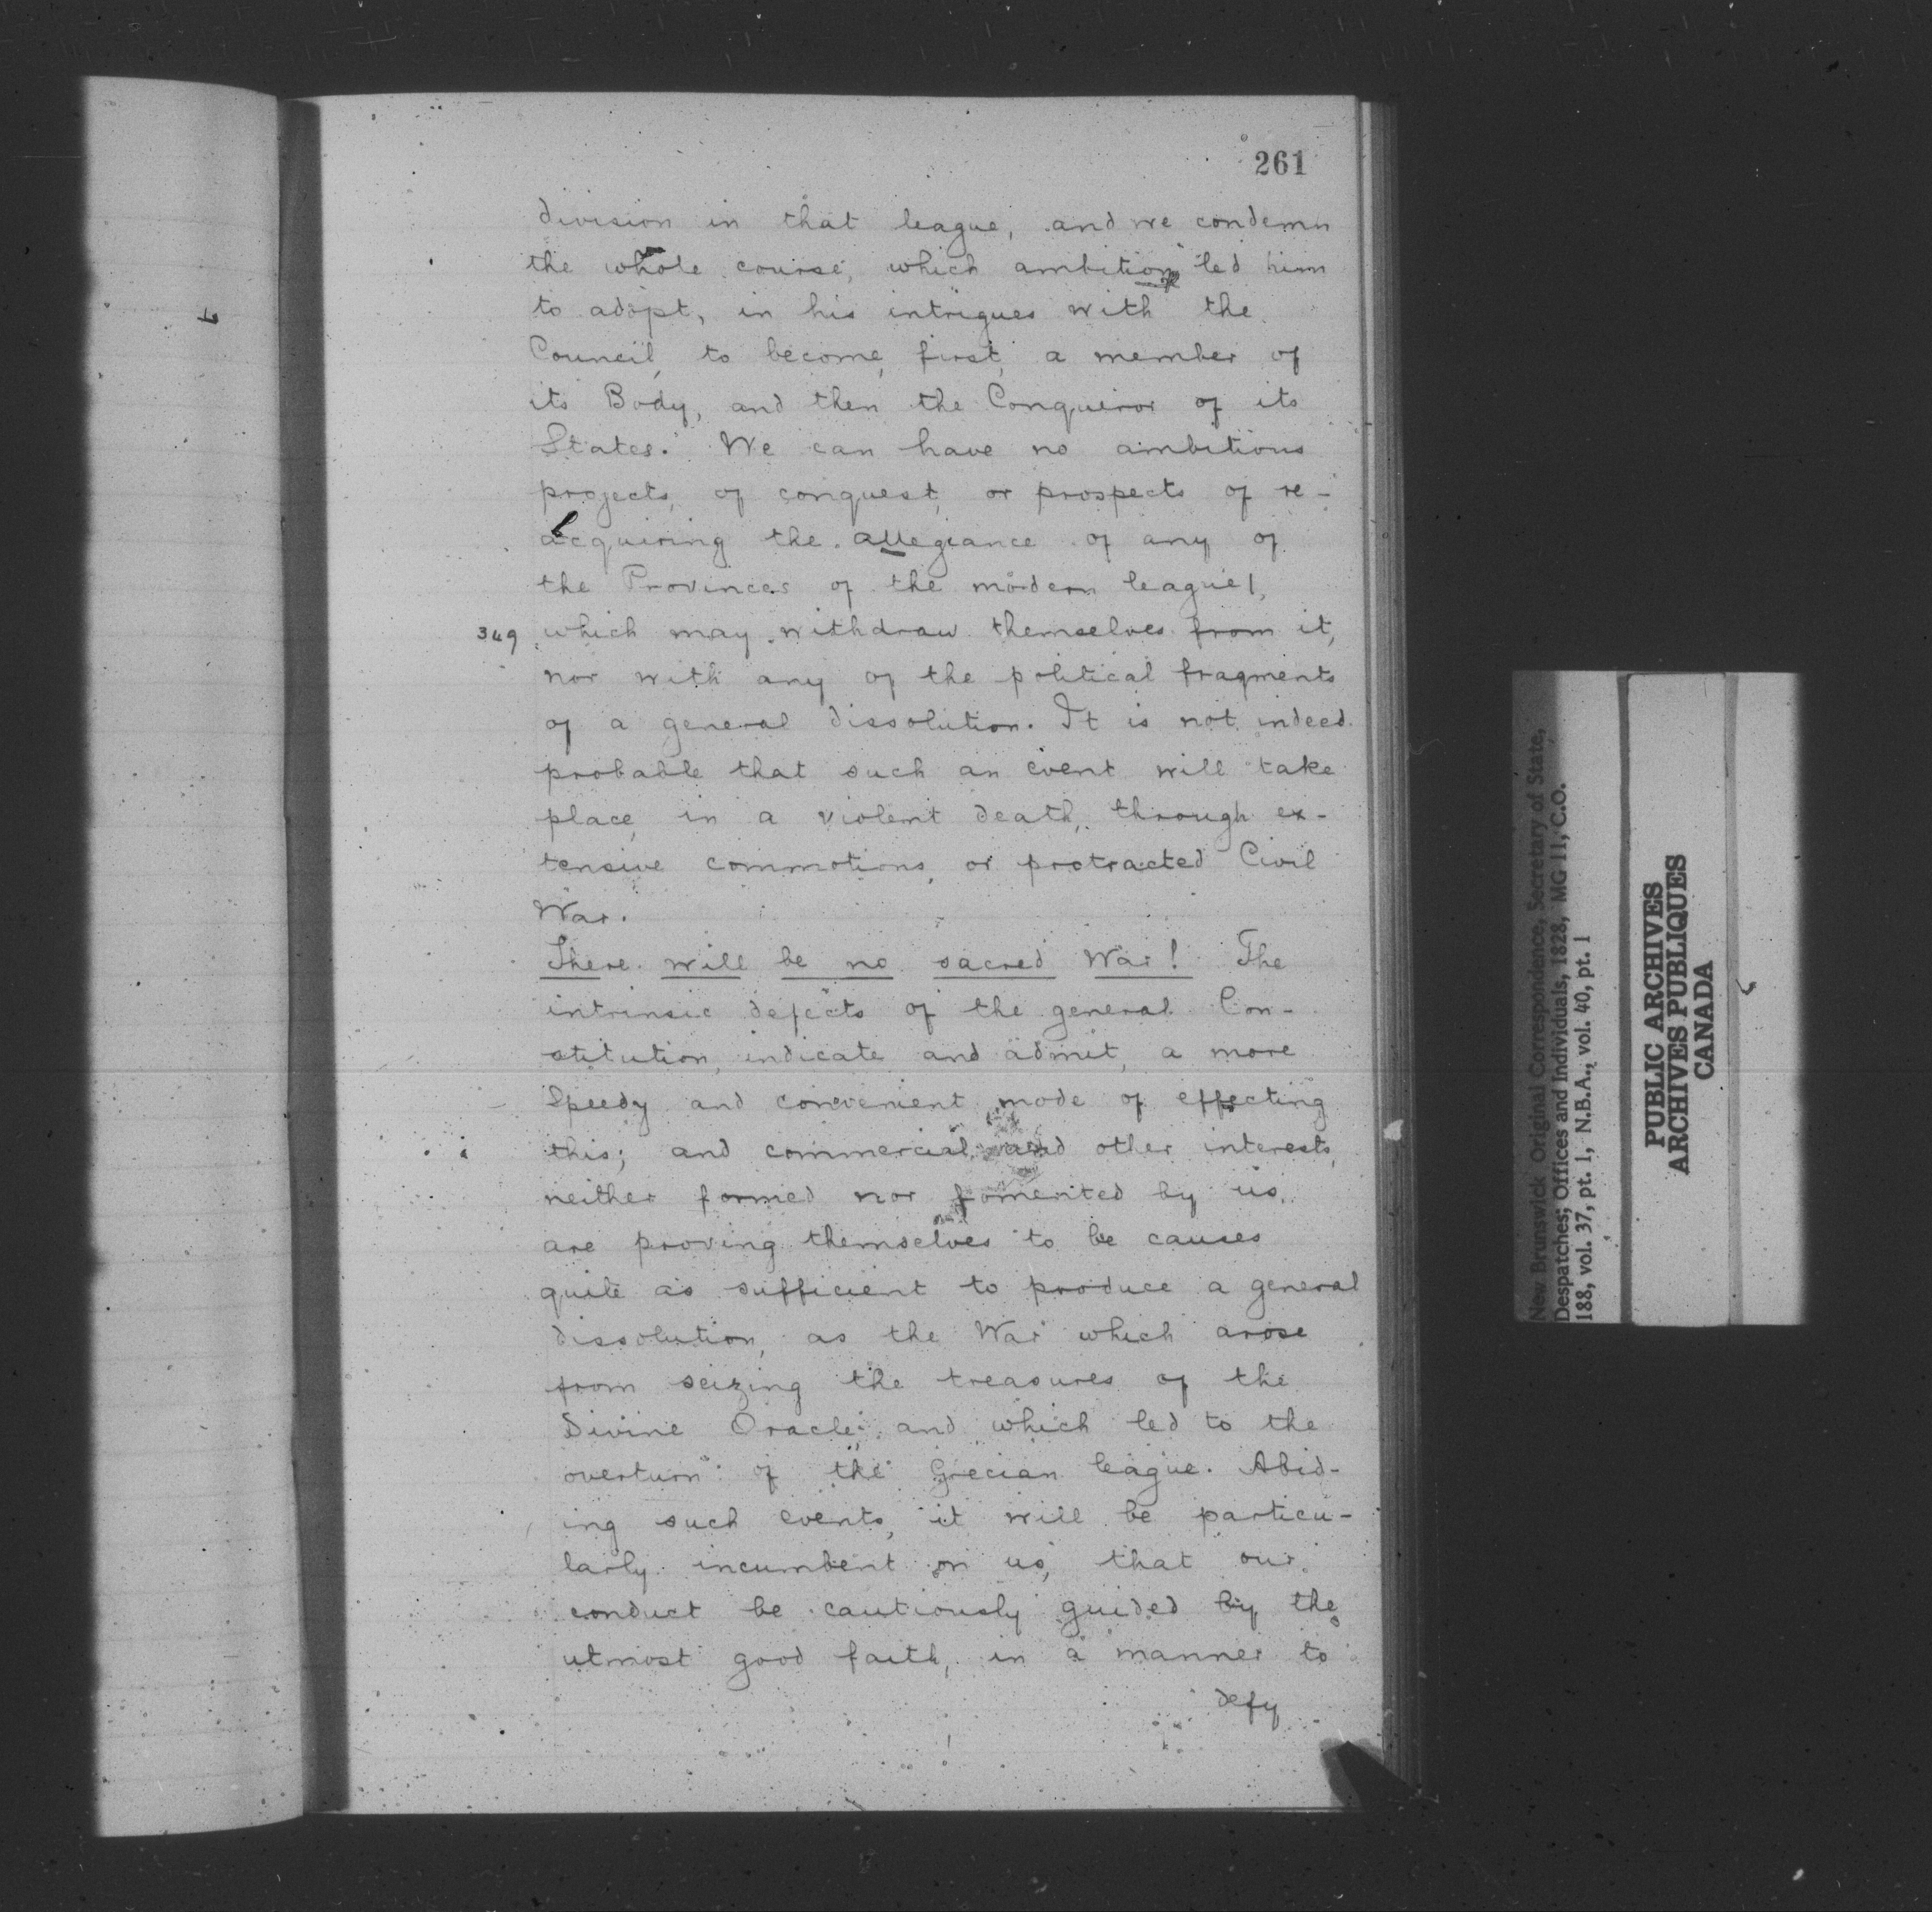 261
division in that league, and we condemn
the whole course, which ambition led him
to adopt, in his intrigues with the
Council, to become, first, a member of
its Body, and then the Conqueror of its
States. We can have no ambitious
projects, of conquest, or prospects of re-
acquiring the allegiance of any of
the Provinces of the modern league,
349 which may withdraw themselves from it,
nor with any of the political fragments
of a general dissolution. It is not indeed
probable that such an event will take
place, in a violent death, through ex-
tensive commotions, or protracted Civil
War.
There will be no sacred War! The
intrinsic defects of the general Con-
stitution, indicate and admit, a more
Speedy and convenient mode of effecting
this; and commercial, and other interests,
neither formed nor fomented by us,
are proving themselves to be causes
quite as sufficient to produce a general
dissolution, as the War which arose
from seizing the treasures of the
Divine Oracle; and which led to the
overturn of the Grecian league. Abid-
ing such events, it will be particu-
larly incumbent on us, that our
conduct be cautiously guided by the
utmost good faith, in a manner to
defy
New Brunswick Original Correspondence, Secretary of State,
Despatches; Offices and Individuals, 1828, MG 11, C.O.
188, vol. 37, pt. 1, N.B.A., vol. 40, pt. 1
PUBLIC ARCHIVES
ARCHIVES PUBLIQUES
CANADA